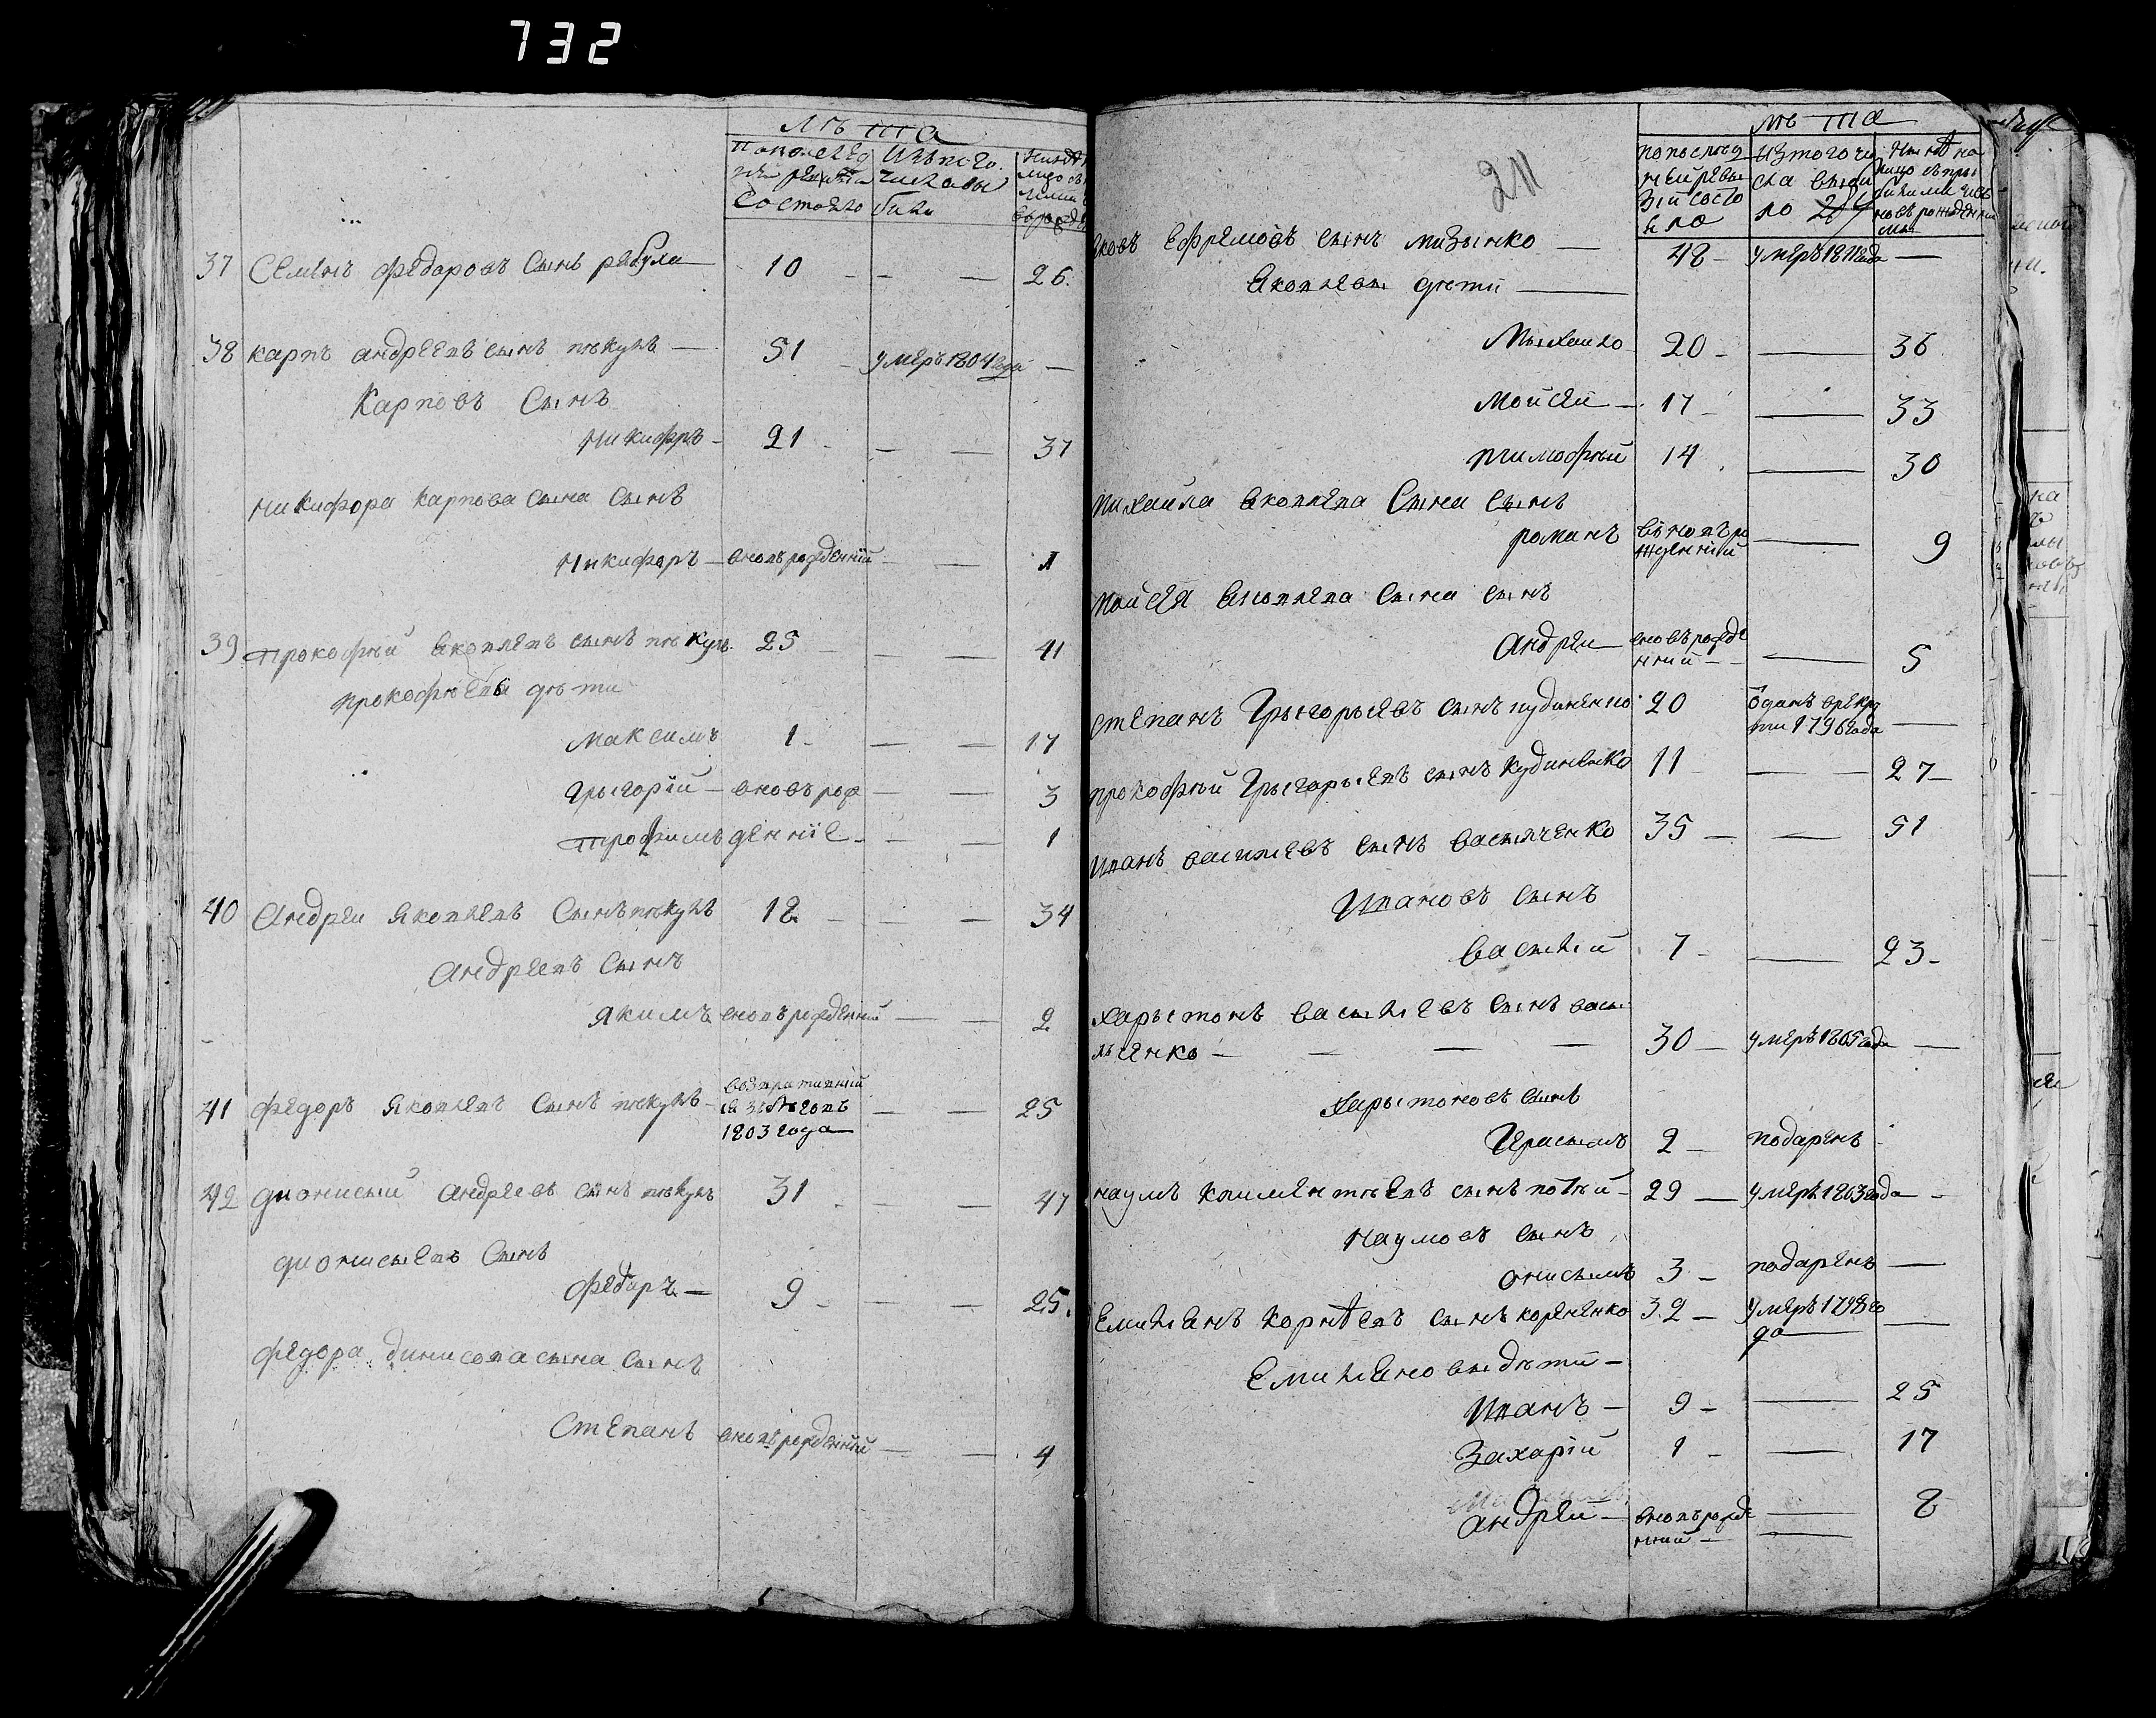 732
лѣта
По последней ревизіи состояло
Изъ того числа выбыло
37 Семенъ Федоровъ сынъ рябула 10 - - 26.
38 карпъ андреевъ сынъ пѣкулъ — 51 - умеръ 1804 года —
Карповъ Сынъ
Никифръ - 21 - — — 37
Никифора Карпова Сына Сынъ
Никифоръ — вновъ рожденній - — 1
39 Прокофѣй Яковлевъ сынъ пѣкулъ. 25 - — — 41
Прокофѣева дѣти
Максимъ 1 - — — 17
Грыгорій — вновъ рож — — 3
Трофимъ денніе - - — 1
40 Андреи Яковлевъ Сынъ пѣкулъ 18 - — — 34
Андреевъ Сынъ
Якимъ вновъ рожденній — — 2
41 Федоръ Яковлевъ Сынъ пѣкулъ -
1803 года — — — 25
42 Дионисый Андреевъ сынъ пѣкулъ 31 - — — 47
Дионисыевъ Сынъ
Федаръ — 9 - — — 25.
Федора динисова сына Сынъ
Степанъ вновъ рожденній — — 4
лѣта
211
по послѣдней ревизій состояло
изтого числа выбило
Яковъ Ефремовъ сынъ мизынко — 48 - умеръ 1811 года —
Яковлевы дѣти —
Мыхаило 20 - — 36
Мойсей — 17 - — 33
Тимофѣй 14 - — 30
Михаила Яковлева Сына Сынъ
романъ вьновъ рожденній — 9
Мойсея Яковлева Сына сынъ
Андреи — вновъ рожденний - — 5
Степанъ Грыгорьевъ сынъ кудиненко 20 ѿданъ врекруты 1796 года —
Прокофѣй Грыгарьевъ сынъ кудиненко 11 — 27 -
Иванъ васильевъ сынъ васыльченко 35 — — 51
Ивановъ сынъ
Васылій 7 - — 23 -
Харытонъ Васылевъ сынъ васы
льченко - — — — 30 — умеръ 1805 года —
Харытоновъ сынъ
Герасымъ 2 — подаренъ -
Наумъ климентѣевъ сынъ 29 — умеръ 1803 года -
Наумовъ сынъ
Онисымъ 3 - подаренъ —
Емилянъ Корнѣевъ сынъ корененко 32 - Умеръ 1798 го
да — —
Емиляновы дѣти -
Иванъ — 9 - — 25
Захарій 1 - — 17
Андрей — вновъ рожденний — — 8